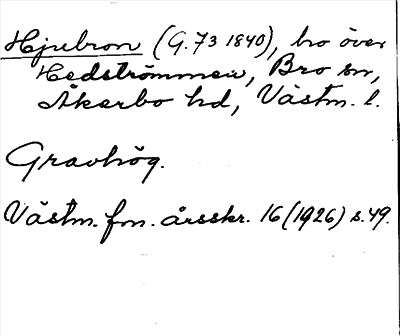 Hjulbron (G. 73 1840), bro över
Hedströmmen, Bro sn,
Åkerbo hd, Västm. l.
Gravhög.
Västm. fm. årsskr. 16 (1926) s. 49.